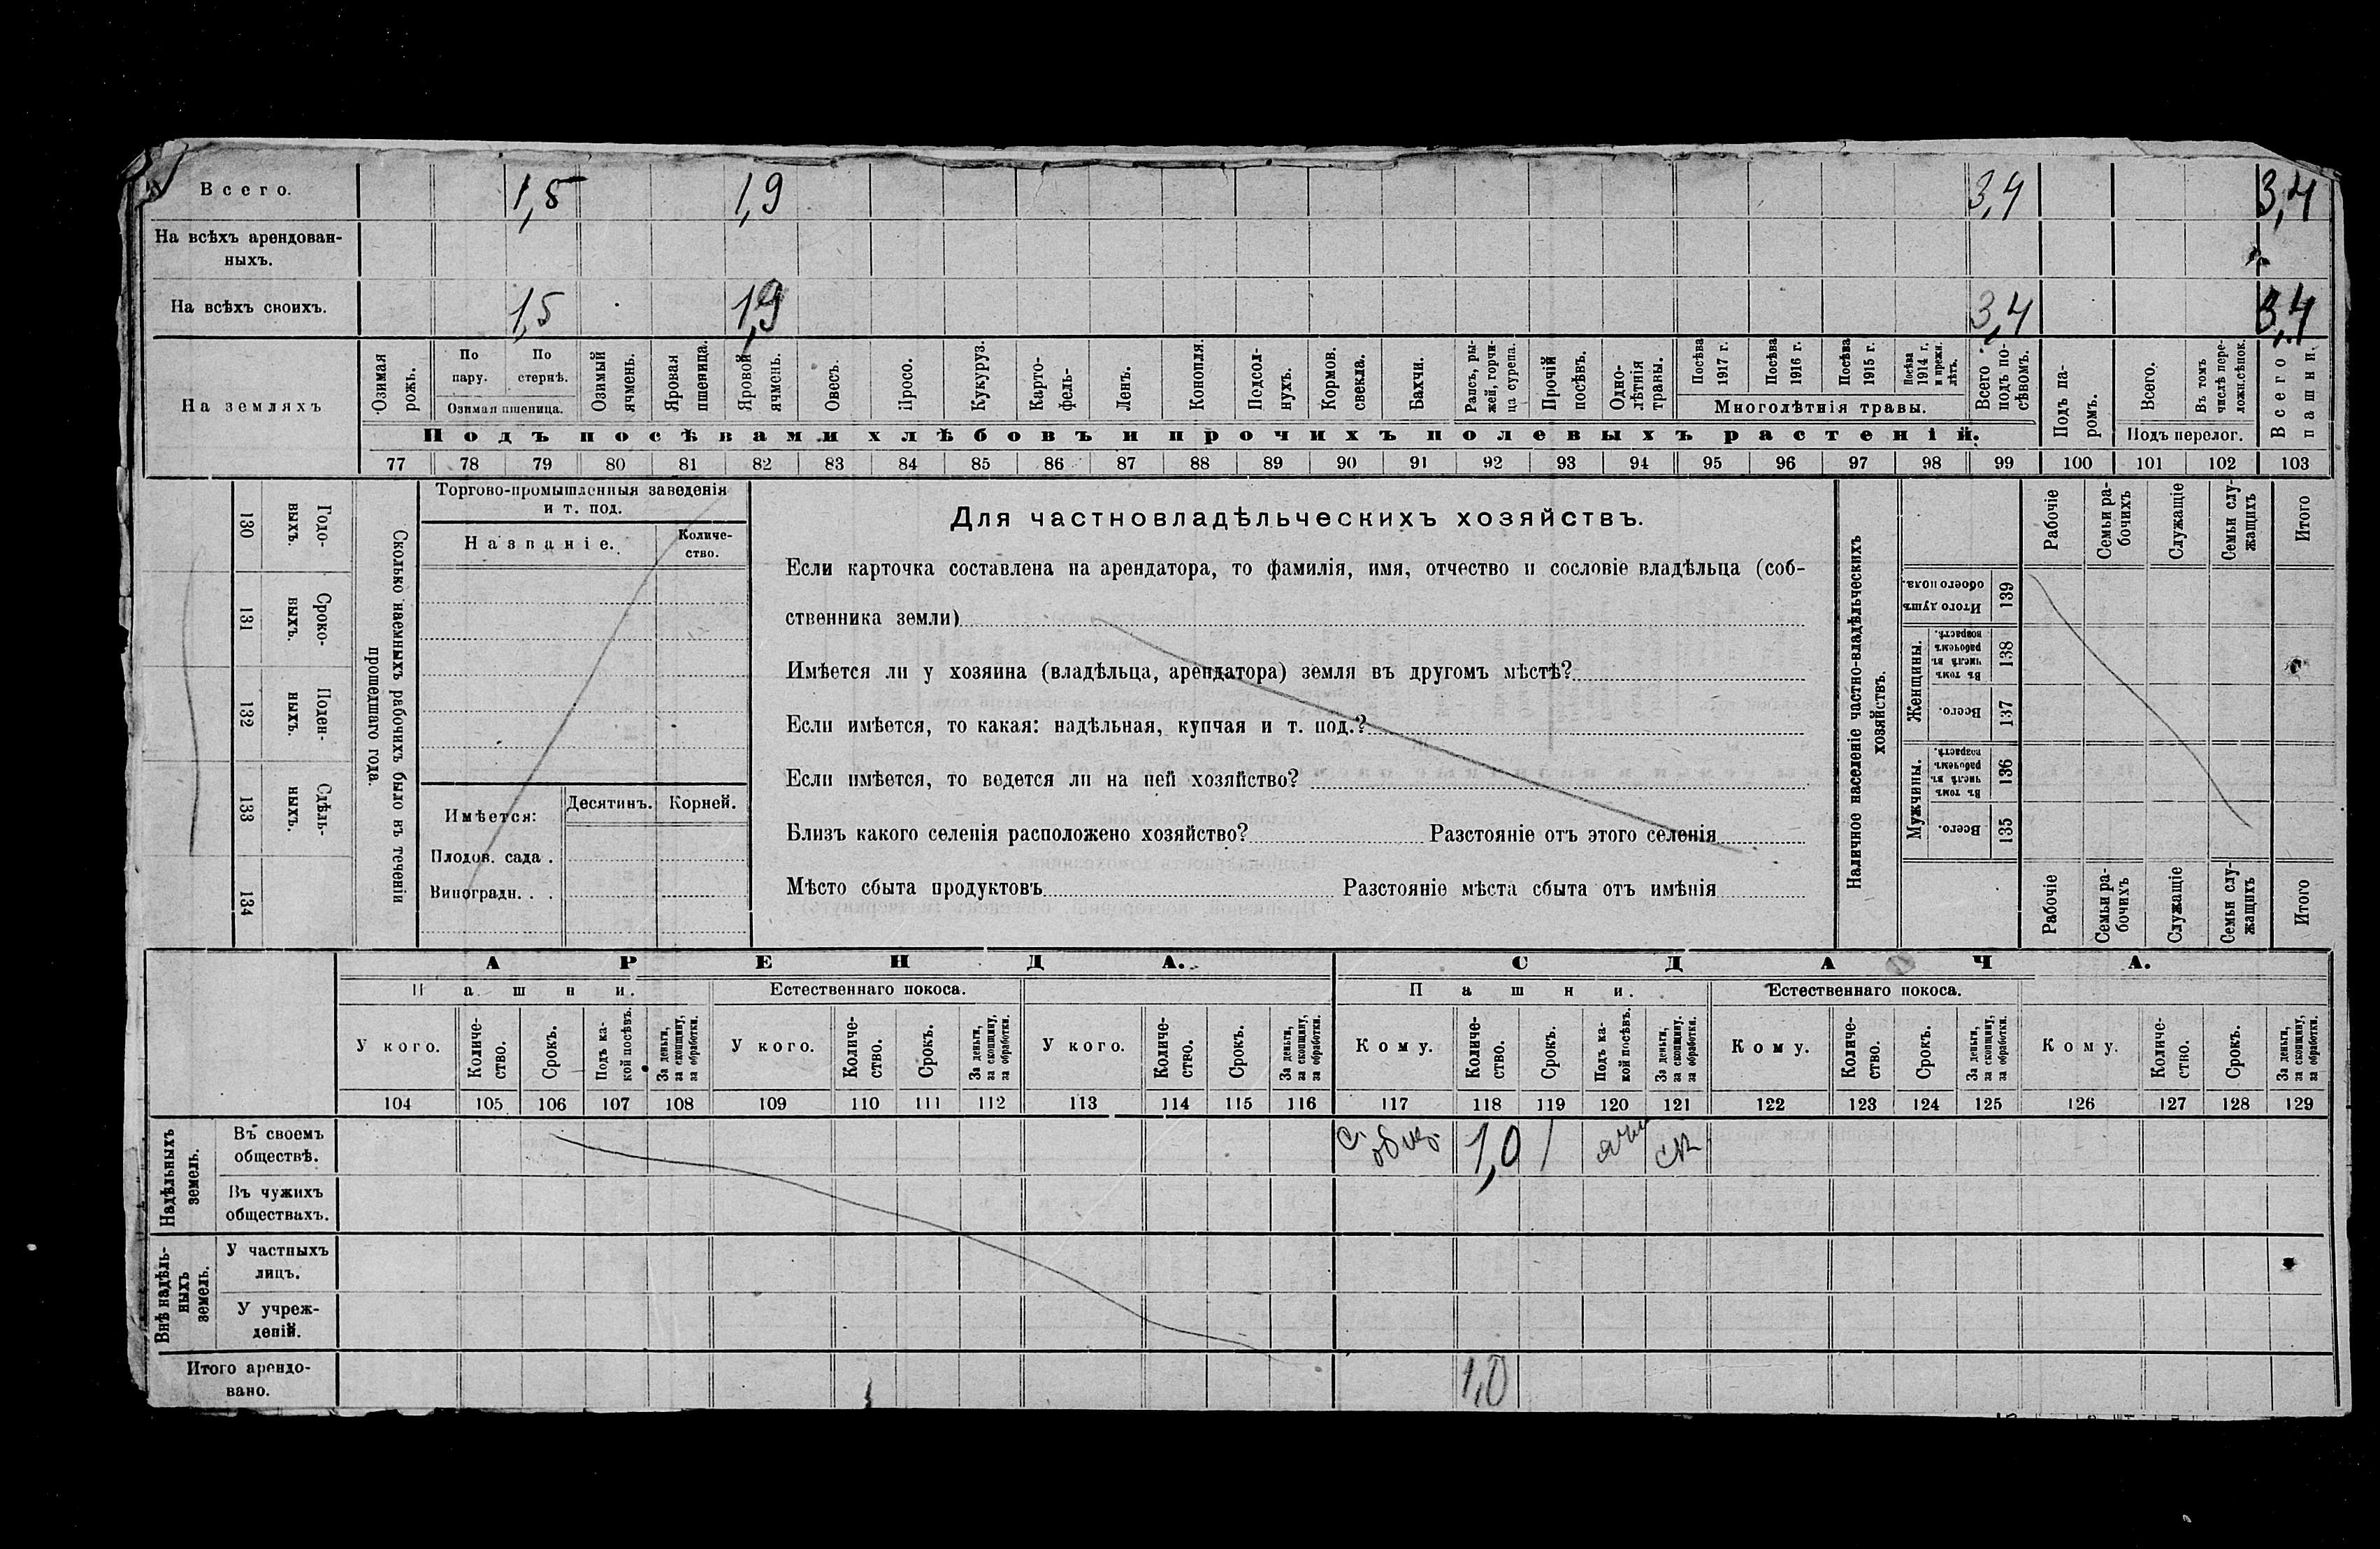 Всего. 1,5 1,9 3,4 3,4
На всѣхъ арендован-
ныхъ.
На всѣхъ своихъ. 1,5 1,9 3,4 3,4
На земляхъ
Озимая рожь.
По пару.
По стернѣ.
Озимая пшеница.
Озимый ячмень.
Яровая пшеница.
Яровой ячмень.
Овесъ.
Просо.
Кукуруз.
Карто-
фель-
Ленъ.
Конопля.
Подсол-
нухъ.
Кормов. свекла.
Бахчи.
Рапсъ, ры-
жей, горчи-
ца сурепа.
Прочій посѣвъ.
Одно-
лѣтнія травы.
Посѣва 1917 г.
Посѣва 1916 г.
Посѣва 1915 г.
Посѣва 1914 г. и прежн. лѣтъ.
Многолѣтнія травы.
Всего подъ по-
сѣвомъ.
Подъ па-
ромъ.
Всего.
Въ томъ числѣ пере-
ложн. сѣнок.
Подъ перелог.
Всего пашни.
Подъ посѣвами хлѣбовъ и прочихъ полевыхъ растеній.
77 78 79 80 81 82 83 84 85 86 87 88 89 90 91 92 93 94 95 96 97 98 99 100 101 102 103
130 Годо-
выхъ.
131 Сроко-
выхъ.
132 Поден-
ныхъ.
133 Сдѣль-
ныхъ.
134
Сколько наемныхъ рабочихъ было въ теченіи
прошедшаго года.
Торгово-промышленныя заведенія
и т. под.
Названіе.
Количе-
ство.
Имѣется:
Десятинъ. Корней.
Плодов. сада .
Виноградн. . .
Для частновладѣльческихъ хозяйствъ.
Если карточка составлена на арендатора, то фамилія, имя, отчество и сословіе владѣльца (соб-
ственника земли)
Имѣется ли у хозяина (владѣльца, арендатора) земля въ другомъ мѣстѣ?
Если имѣется, то какая: надѣльная, купчая и т. под.?
Если имѣется, то ведется ли на ней хозяйство?
Близъ какого селенія расположено хозяйство? Разстояніе отъ этого селенія
Мѣсто сбыта продуктовъ Разстояніе мѣста сбыта отъ имѣнія
Наличное населеніе частно-владѣльческихъ
хозяйствъ.
Рабочіе
Семьи ра-
бочихъ
Служащіе
Семьи слу-
жащихъ
Итого
Итого душъ обоего пола. 139
Женщины.
Въ томъ числѣ въ рабочемъ возрастѣ. 138
Всего. 137
Мужчины.
Въ томъ числѣ въ рабочемъ возрастѣ. 136
Всего. 135
Рабочіе
Семьи ра-
бочихъ
Служащіе
Семьи слу-
жащихъ
Итого
АРЕНДА. СДАЧА.
Пашни. Естественнаго покоса. Пашни. Естественнаго покоса.
У кого.
Количе-
ство.
Срокъ.
Подъ ка-
кой посѣвъ.
За деньги, за скопщину, за обработки.
У кого.
Количе-
ство.
Срокъ.
За деньги, за скопщину, за обработки.
У кого.
Количе-
ство.
Срокъ.
За деньги, за скопщину, за обработки.
Кому.
Количе-
ство.
Срокъ.
Подъ ка-
кой посѣвъ.
За деньги, за скопщину, за обработки.
Кому.
Количе-
ство.
Срокъ.
За деньги, за скопщину, за обработки.
Кому.
Количе-
ство.
Срокъ.
За деньги, за скопщину, за обработки.
104 105 106 107 108 109 110 111 112 113 114 115 116 117 118 119 120 121 122 123 124 125 126 127 128 129
Надѣльныхъ земель.
Въ своемъ
обществѣ. 1,0
Въ чужихъ
обществахъ.
Внѣ надѣль-
ныхъ земель.
У частныхъ
лицъ.
У учреж-
деній.
Итого арендо-
вано. 1,0